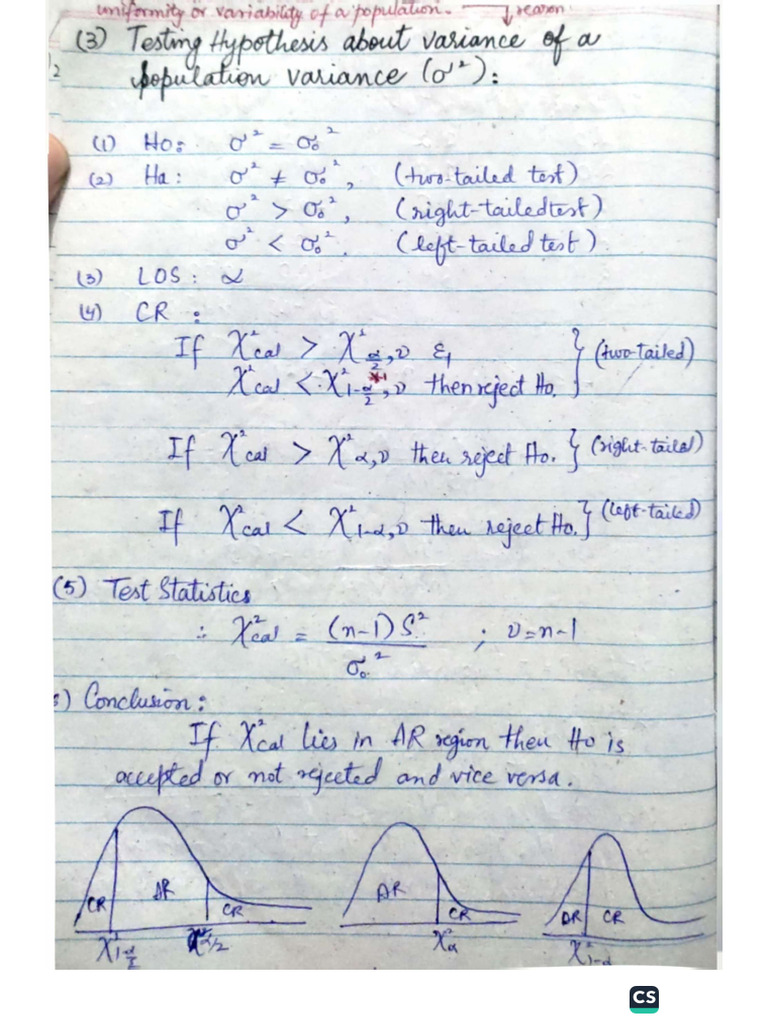 uniformity or variability of a population. → reason
(3) Testing Hypothesis about variance of a
population variance (σ²):
2
(1) Ho: σ² = σ₀²
(2) Ha: σ² ≠ σ₀², (two-tailed test)
σ² > σ₀², (right-tailed test)
σ² < σ₀². (left-tailed test).
(3) LOS: α
(4) CR :
If χ²cal > χ²α/2,ν & } (two-tailed)
χ²cal < χ²1-α/2,ν then reject Ho.
If χ²cal > χ²α,ν then reject Ho. } (right-tailed)
If χ²cal < χ²1-α,ν then reject Ho.} (left-tailed)
(5) Test Statistics
∴ χ²cal = (n-1) S² / σ₀² ; ν=n-1
) Conclusion:
If χ²cal lies in AR region then Ho is
accepted or not rejected and vice versa.
CR AR CR AR CR AR CR
χ²1-α/2 χ²α/2 χ²α χ²1-α
CS